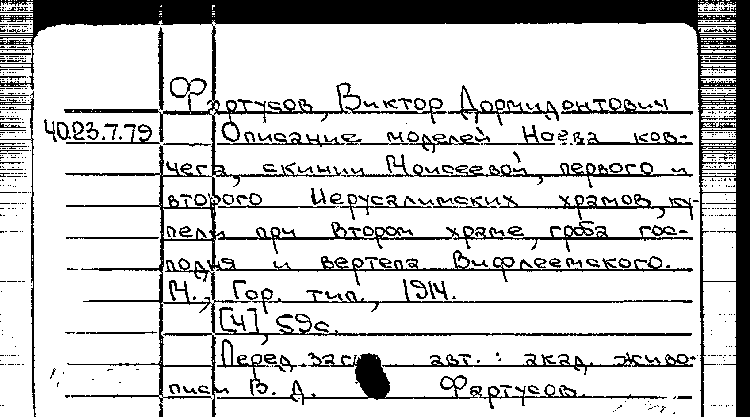 Фартусов, Виктор Дормидонтович
40.23.7.79 Описание моделей Ноева ков-
чега, скинии Моисеевой, первого и
второго Иерусалимских храмов, ку-
пели при втором храме, гроба гос-
подня и вертепа Вифлеемского.
М., Гор. тип., 1914.
[4], 59с.
Перед загл. авт.: акад. живо-
писи В. Д. Фартусов.